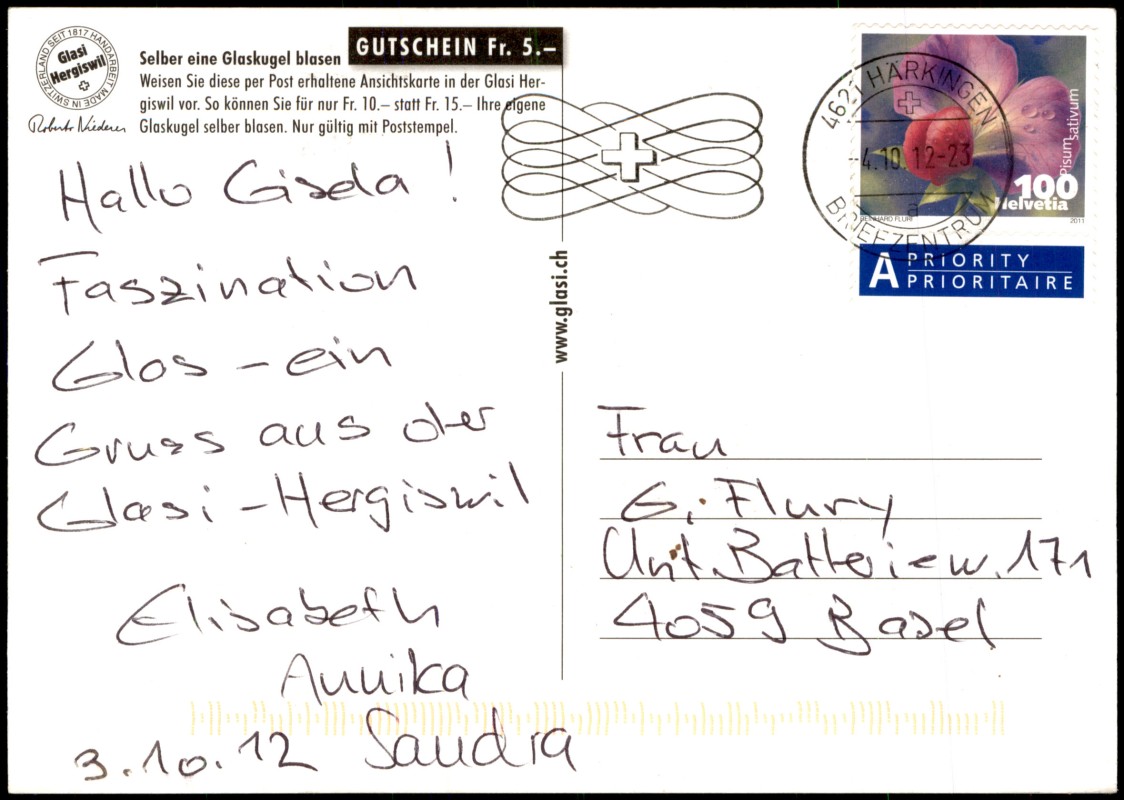 HANDARBEIT MADE IN SWITZERLAND SEIT 1817
Glasi
Hergiswil
Roberto Niederer
Selber eine Glaskugel blasen
GUTSCHEIN Fr. 5.–
Weisen Sie diese per Post erhaltene Ansichtskarte in der Glasi Her-
giswil vor. So können Sie für nur Fr. 10.– statt Fr. 15.– Ihre eigene
Glaskugel selber blasen. Nur gültig mit Poststempel.
Hallo Gisela !
Faszination
Glas – ein
Gruss aus der
Glasi – Hergiswil
Elisabeth
Annika
Sandra
3.10.12
www.glasi.ch
4621 HÄRKINGEN
-4.10.12-23
a
BRIEFZENTRUM
Pisum sativum
100
Helvetia
BERNHARD FLURI
2011
A PRIORITY
PRIORITAIRE
Frau
G. Flury
Unt. Batteriew. 171
4059 Basel